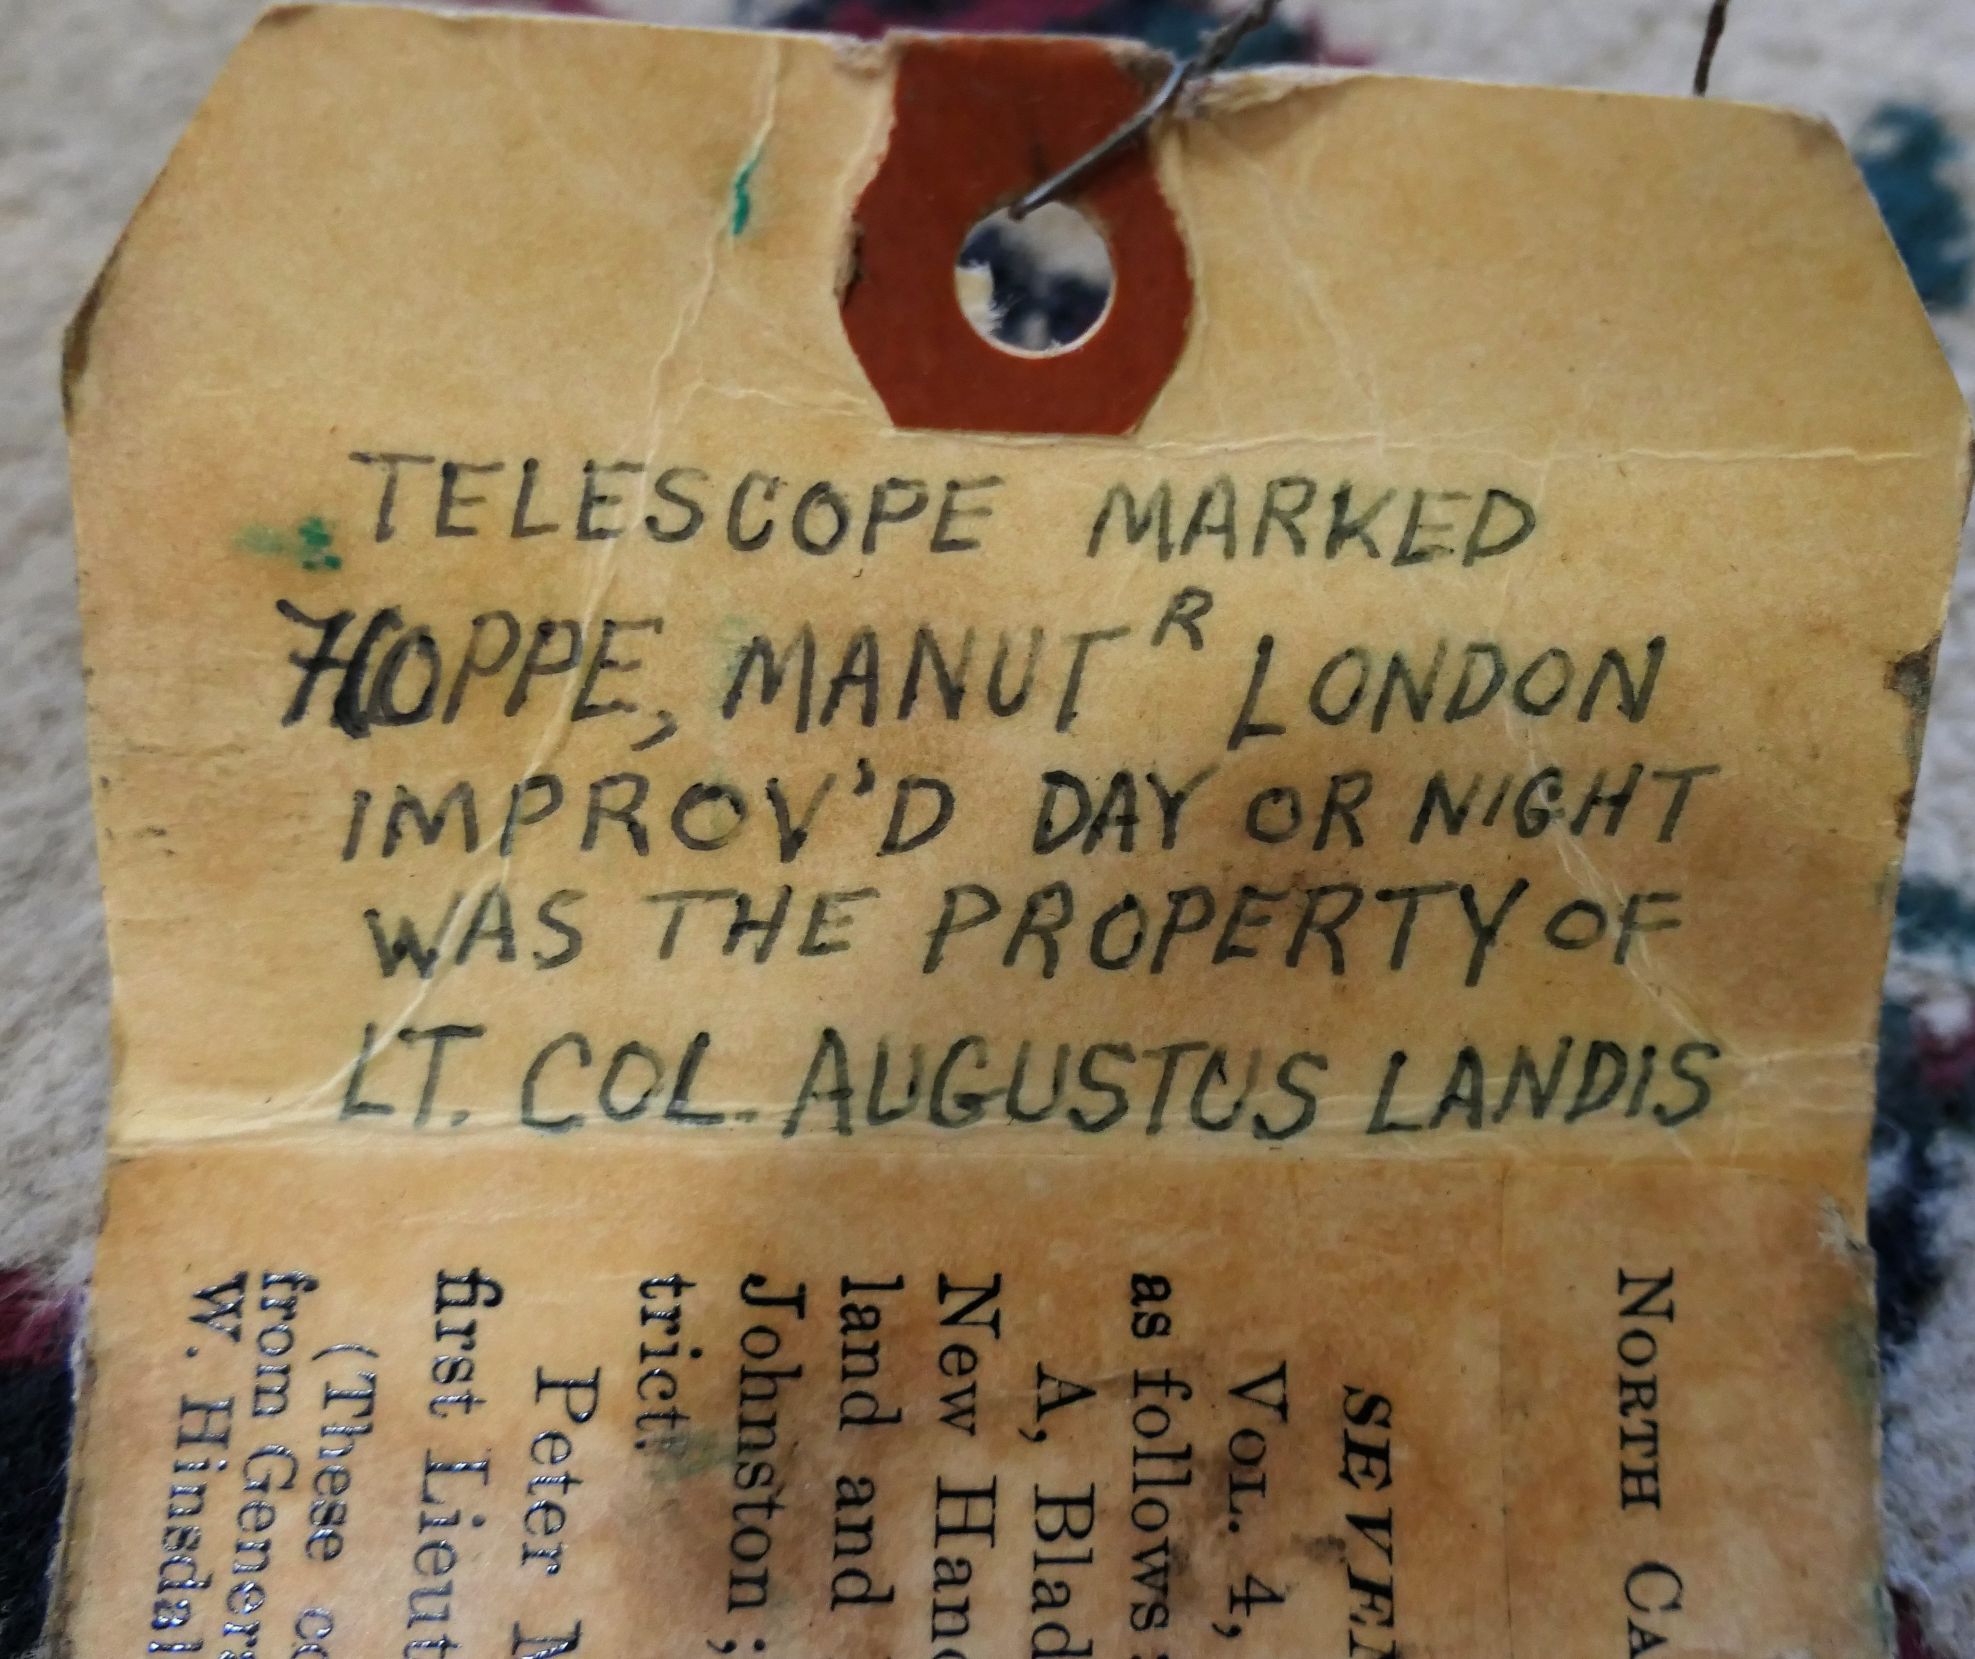 TELESCOPE MARKED
HOPPE, MANUT R LONDON
IMPROV'D DAY OR NIGHT
WAS THE PROPERTY OF
LT. COL. AUGUSTUS LANDIS
NORTH CA
SEVEN
VOL. 4,
as follows:
A, Blad
New Hano
land and
Johnston;
trict.
Peter
first Lieut
(These co
from Genera
W. Hinsdal